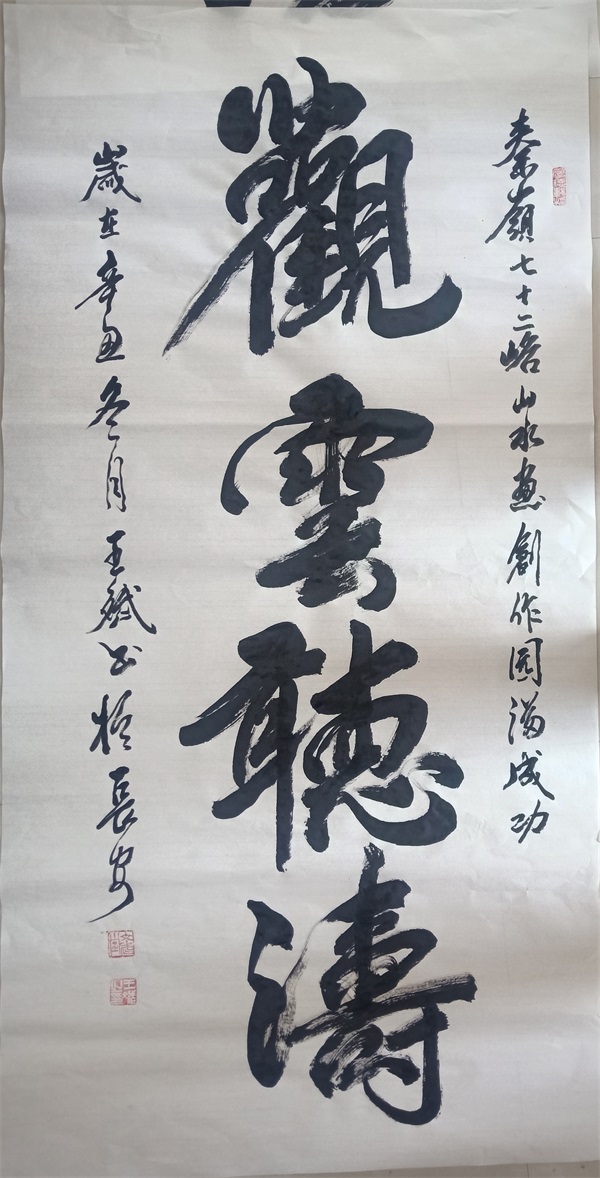 秦嶺七十二峪山水畫創作圆滿成功
觀雲聽濤
歲在辛丑冬月王斌书於長安